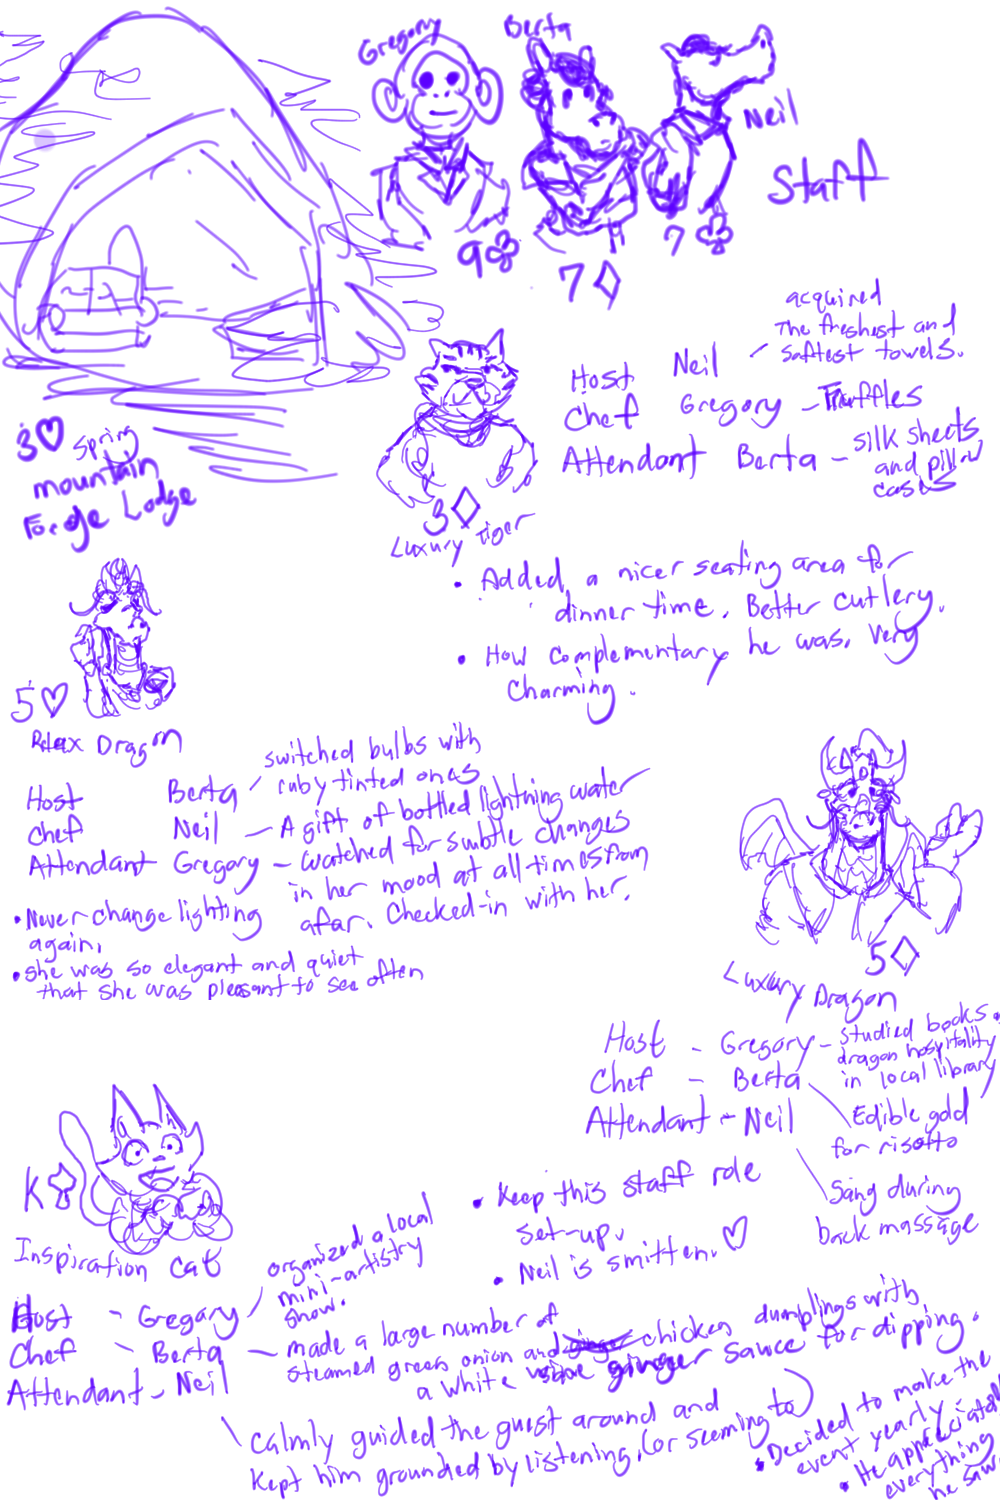 Gregory
Berta
Neil
Staff
9♣
7◇
7♣
3♡ Spring
mountain
Forge Lodge
3◇
Luxury Tiger
Host Neil
acquired
The freshest and
softest towels.
Chef Gregory - Truffles
Attendant Berta - silk sheets
and pillow
cases
• Added a nicer seating area for
dinner time. Better cutlery.
• How complementary he was. Very
Charming.
5♡
Relax Dragon
Host Berta
switched bulbs with
ruby tinted ones
Chef Neil - A gift of bottled lightning water
Attendant Gregory - watched for subtle changes
in her mood at all times from
afar. Checked-in with her.
• Never change lighting
again.
• she was so elegant and quiet
that she was pleasant to see often
5◇
Luxury Dragon
Host - Gregory - studied books
dragon hospitality
in local library
Chef - Berta
Edible gold
for risotto
Attendant - Neil
Sang during
back massage
• Keep this staff role
set-up.
• Neil is smitten. ♡
K
Inspiration Cat
Host - Gregory
organized a local
mini-artistry
show.
Chef - Berta - made a large number of
steamed green onion and chicken dumplings with
a white ginger sauce for dipping.
Attendant - Neil
Calmly guided the guest around and
kept him grounded by listening. (or seeming to)
• Decided to make the
event yearly.
• He appreciated
everything
he saw.